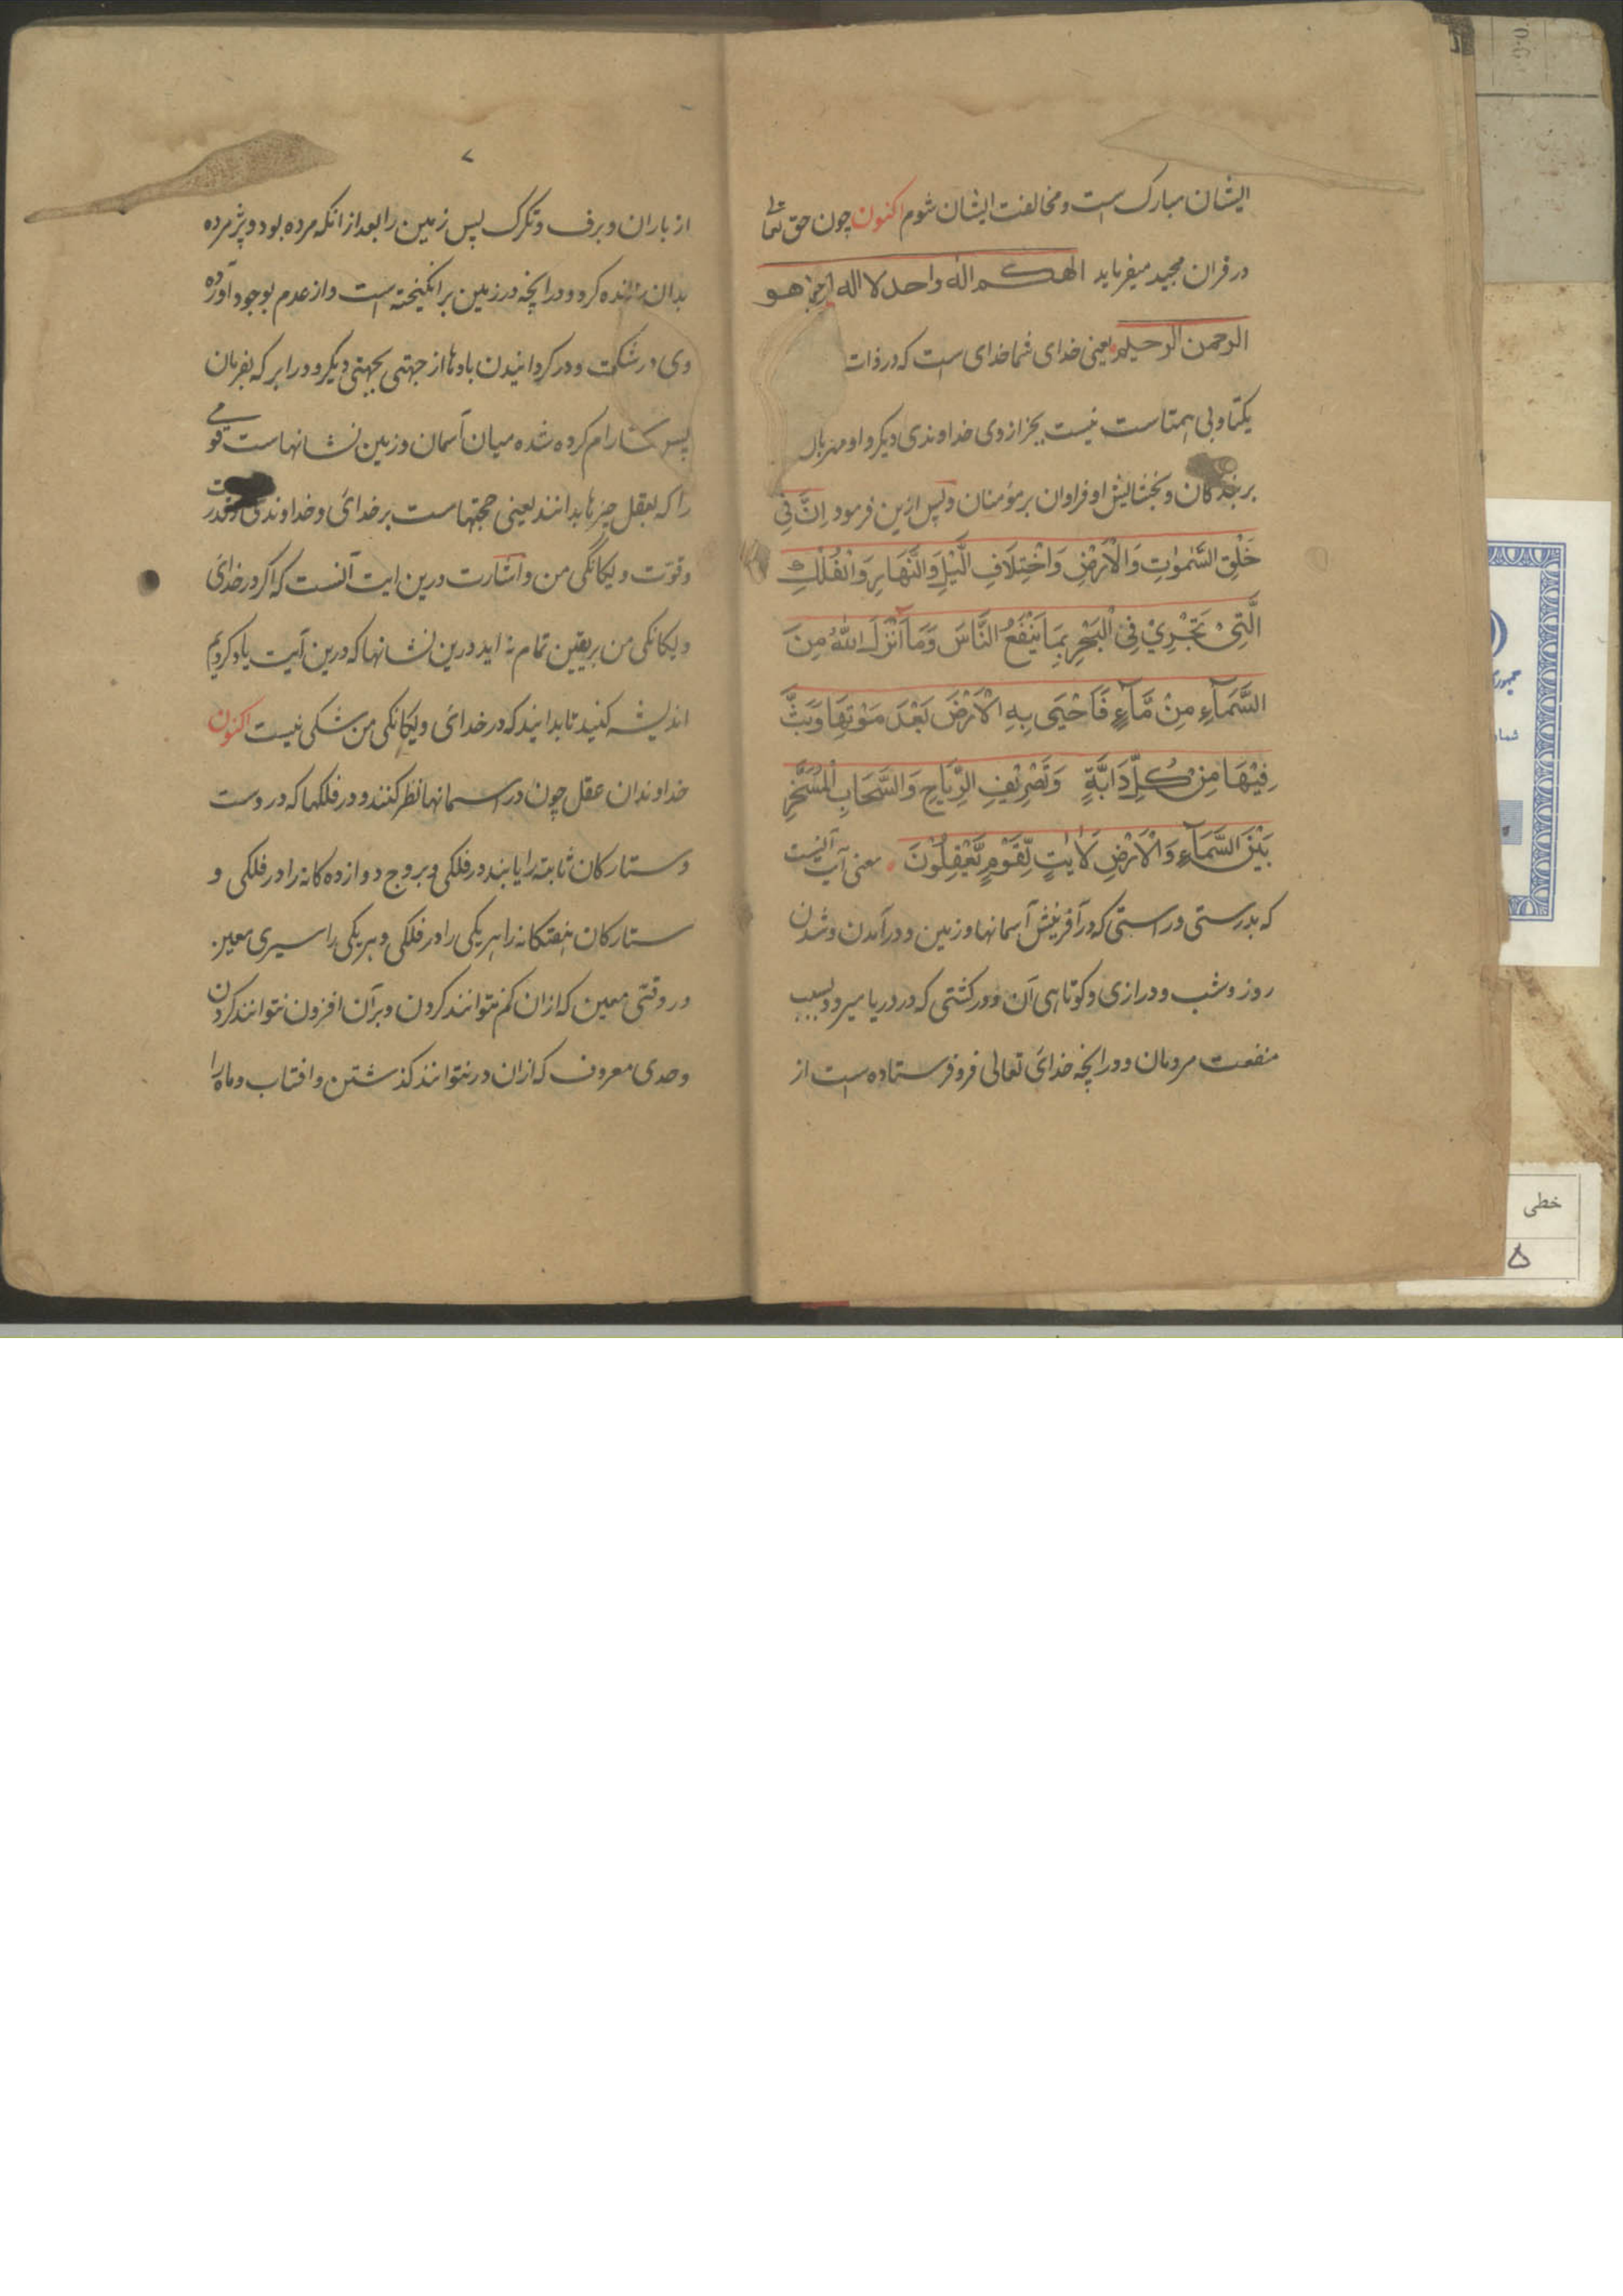 ایشان مبارک است و مخالفت ایشان شوم اکنون چون حق تعالی
در قران مجید میفرماید الهکم اله واحد لا اله الا هو
الرحمن الرحیم یعنی خدای شما خدای است که در ذات
یکتا و بی همتاست نیست بجز از وی خداوندی دیکر و او مهربان
بر بندکان و بخشایش او فراوان بر مؤمنان و پس ازین فرمود اِنَّ فِی
خَلْقِ السَّمٰوٰتِ وَالْاَرْضِ وَاخْتِلَافِ الَّیْلِ وَالنَّهَارِ وَالْفُلْكِ
الَّتِیْ تَجْرِیْ فِی الْبَحْرِ بِمَا یَنْفَعُ النَّاسَ وَمَا اَنْزَلَ اللّٰهُ مِنَ
السَّمَآءِ مِنْ مَّآءٍ فَاَحْیَی بِهِ الْاَرْضَ بَعْدَ مَوْتِهَا وَبَثَّ
فِیْهَا مِنْ کُلِّ دَابَّةٍ وَتَصْرِیْفِ الرِّیَاحِ وَالسَّحَابِ الْمُسَخَّرِ
بَیْنَ السَّمَآءِ وَالْاَرْضِ لَاٰیٰتٍ لِّقَوْمٍ یَّعْقِلُوْنَ معنی آیت آنست
که بدرستی و راستی که در آفرینش آسمانها و زمین و در آمدن و شدن
روز و شب و درازی و کوتاهی آن و در کشتی که در دریا میرود بسبب
منفعت مردمان و در انچه خدای تعالی فرو فرستاده است از
۷
از باران و برف و تکرک پس زمین را بعد از انکه مرده بود و پژمرده
بدان زنده کرد و در انچه در زمین بر انکیخته است و از عدم بوجود آورده
وی در شکت و در کردانیدن بادها از جهتی بجهتی دیکر و در ابر که بفرمان
رام کرده شده میان آسمان و زمین نشانهاست قومی
را که بعقل چیزها بدانند یعنی حجتهاست بر خدائ و خداوندی و قدرت
و قوّت و یکانکی من و اشارت درین ایت آنست که اکر در خدائ
و یکانکی من بر یقین تمام نه اید درین نشانها که درین آیت یاد کردیم
اندیشه کنید تا بدانید که در خدائ و یکانکی من شکی نیست اکنون
خداوندان عقل چون در اسمانها نظر کنند و در فلکها که دروست
و ستارکان ثابته را یابند در فلکی و بروج دوازده کانه را در فلکی و
ستارکان هفتکانه را هر یکی را در فلکی و هر یکی را سیری معین
در وقتی معین که ازان کم نتوانند کردن و بر آن افزون نتوانند کردن
و حدی معروف که ازان در نتوانند کذشتن و افتاب و ماه را
خطی
۵